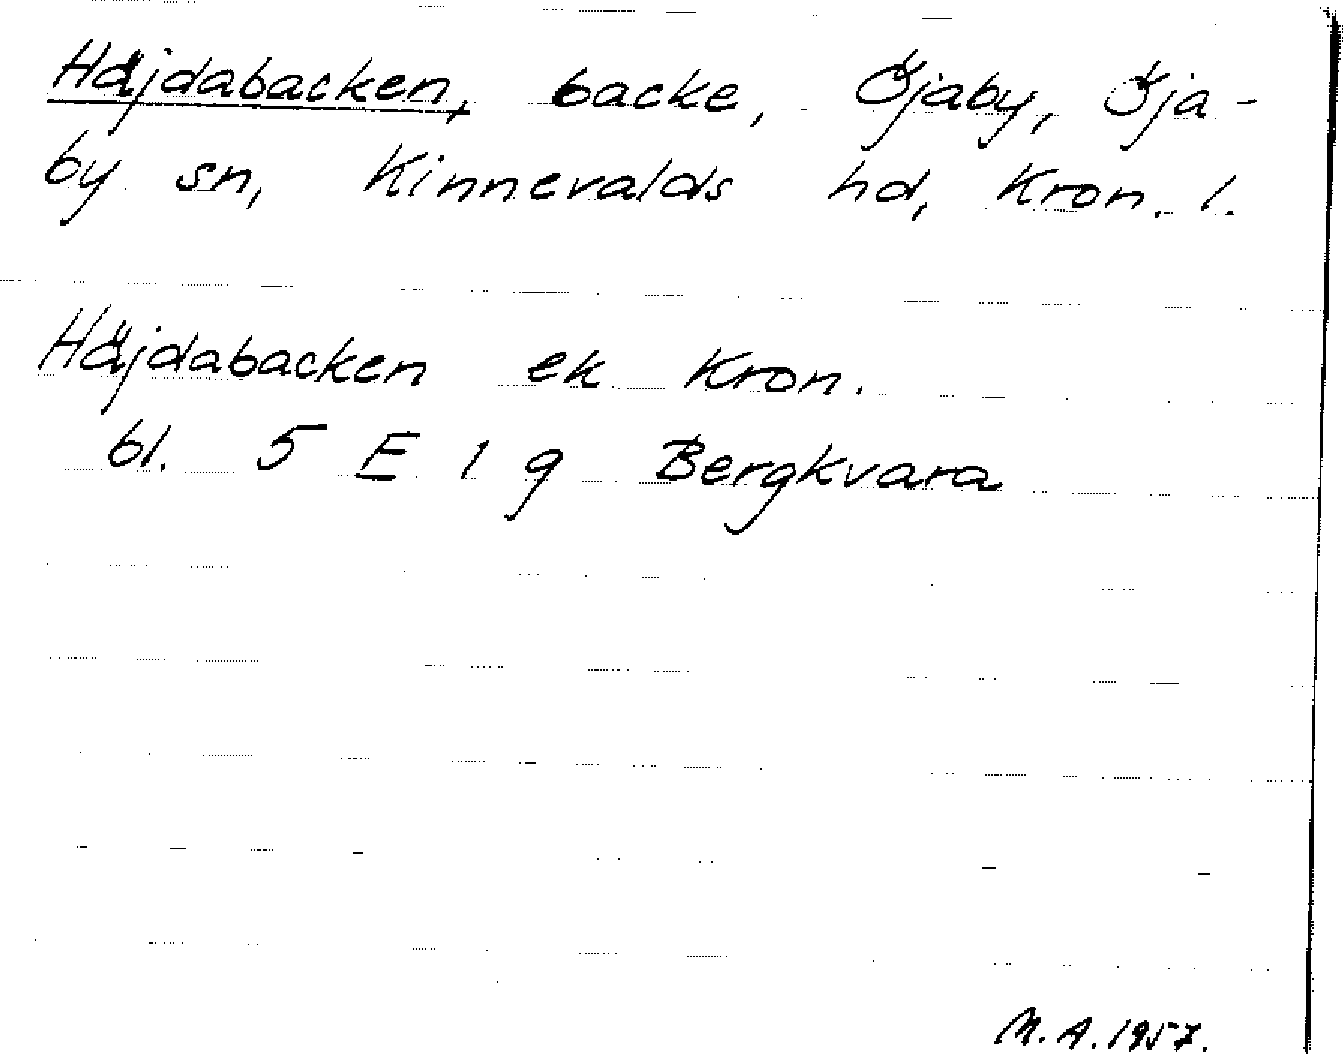 Höjdabacken, backe, Öjaby, Öja-
by sn, Kinnevalds hd, Kron. l.
Höjdabacken ek Kron.
bl. 5 E 1 g Bergkvara
M.A. 1957.